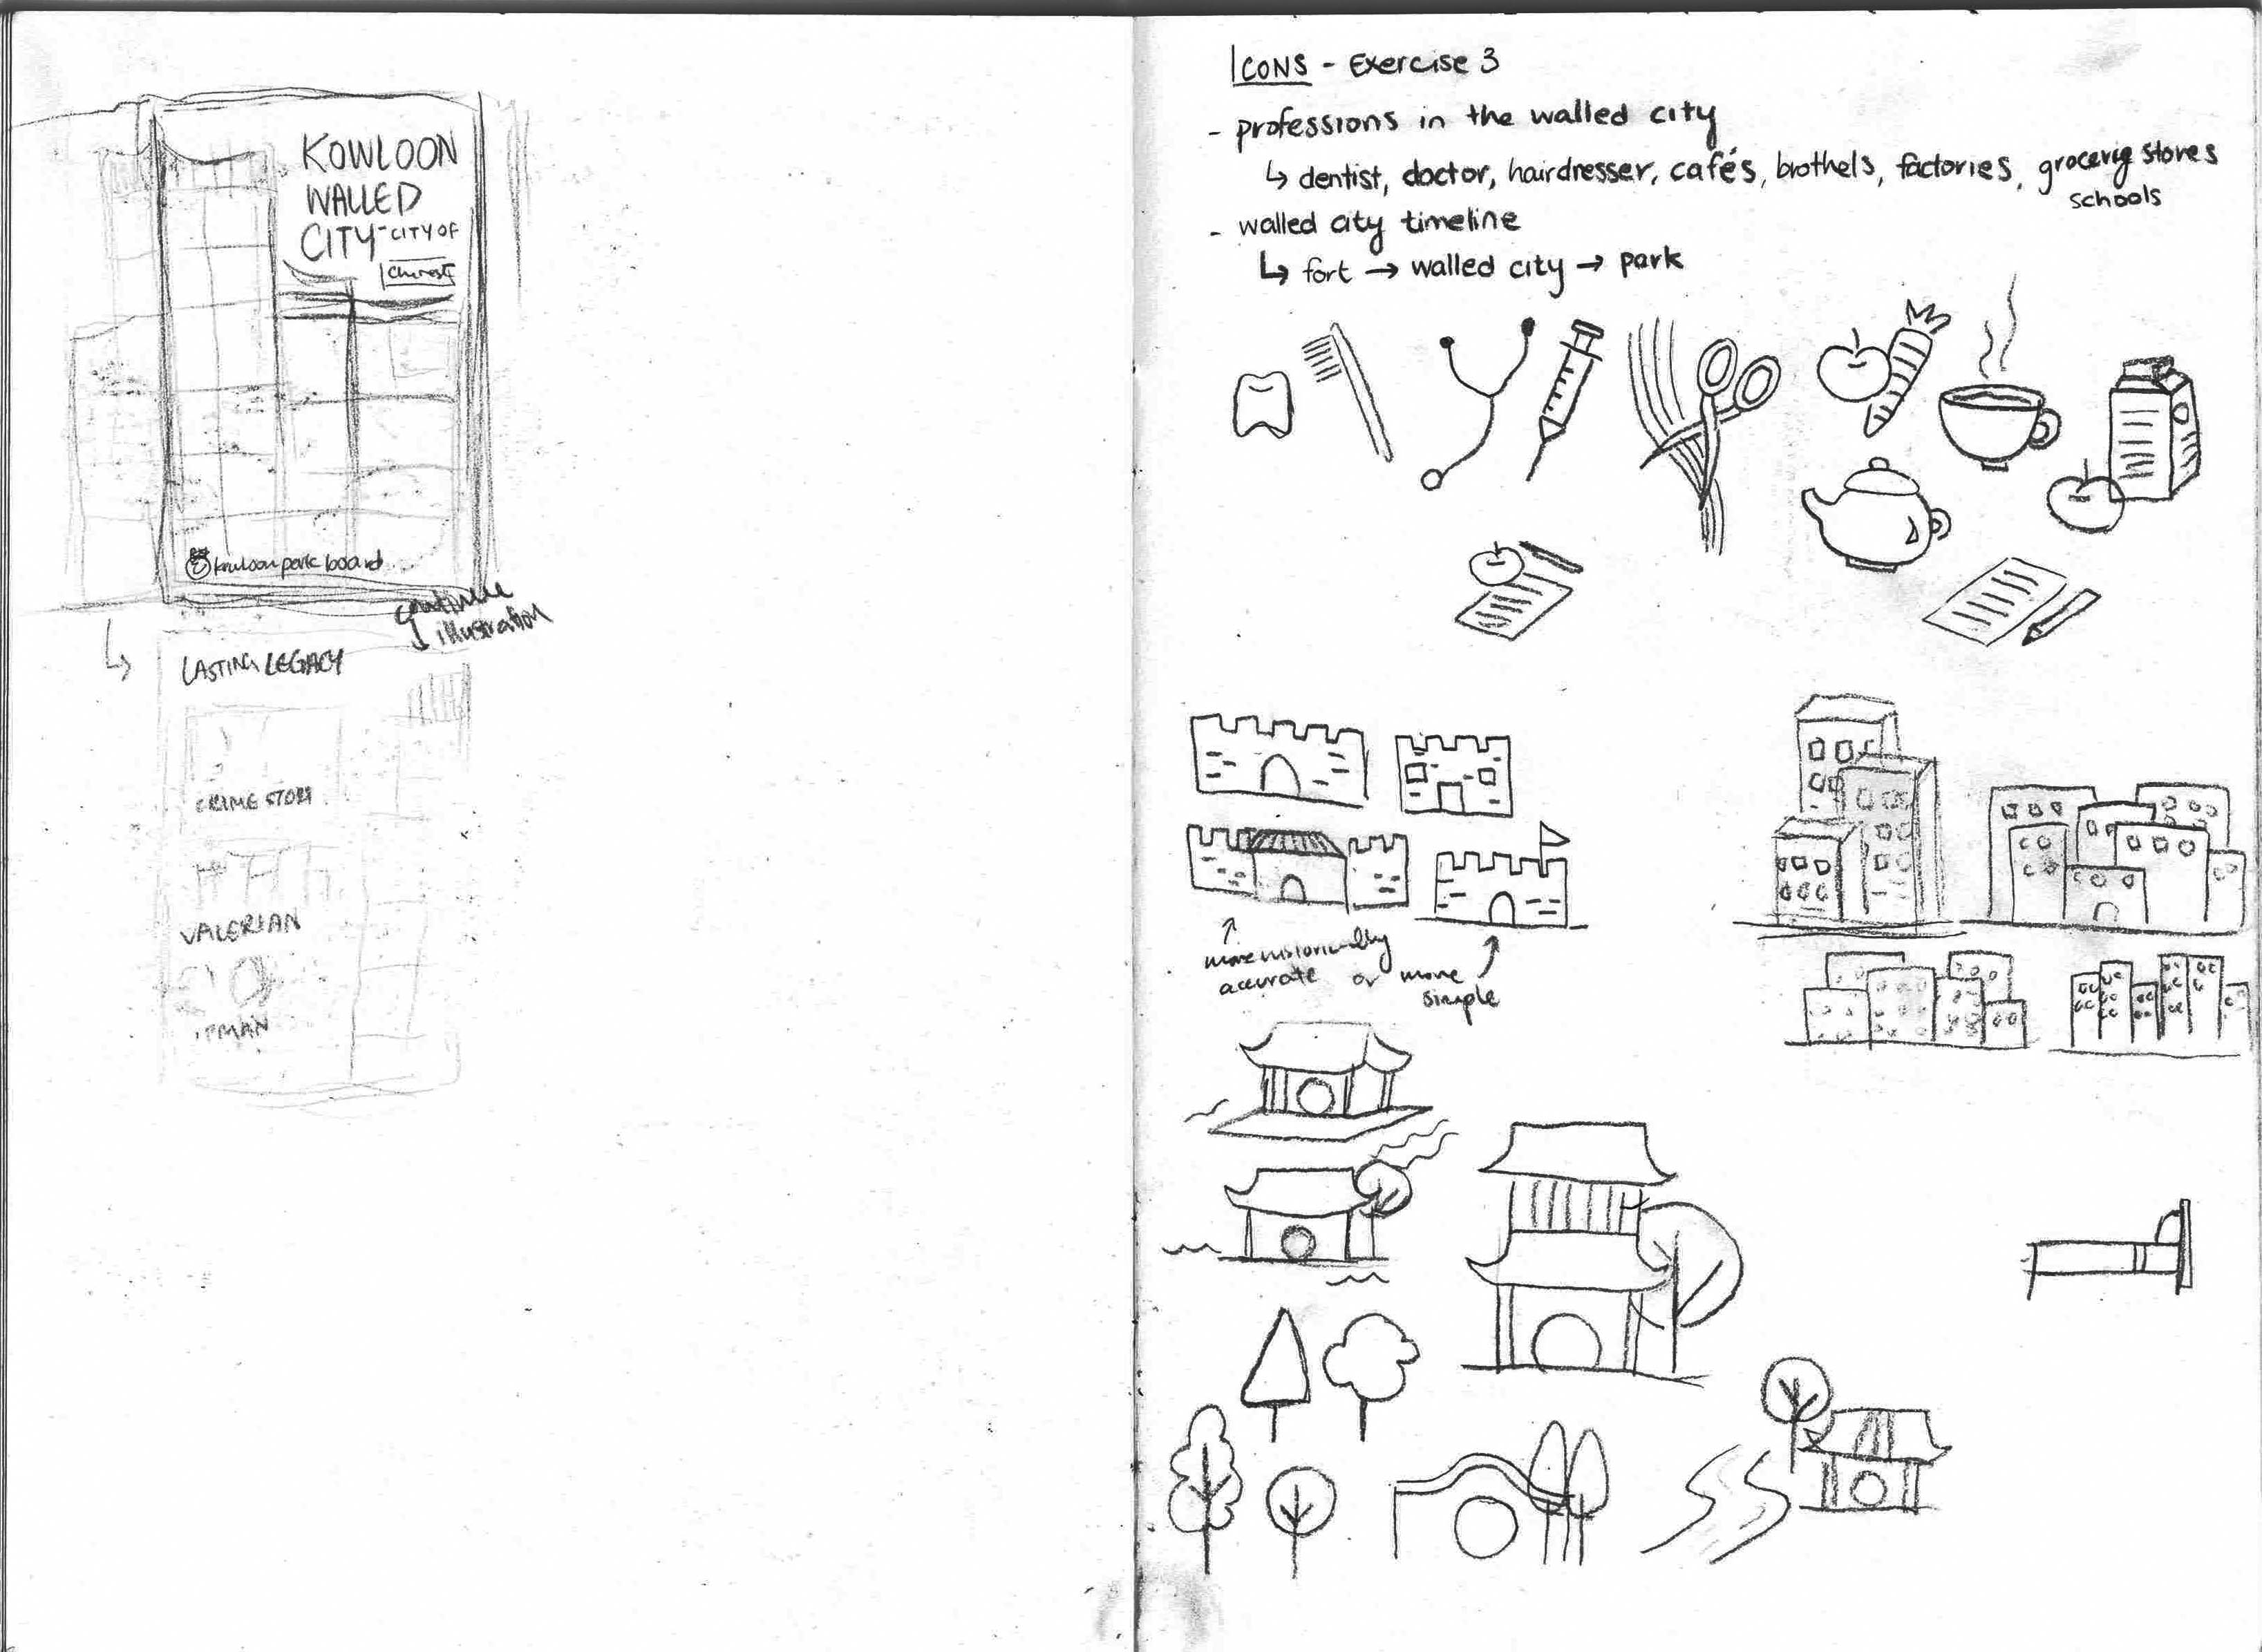 KOWLOON
WALLED
CITY - CITY OF
kowloon park board
continue
illustration
LASTING LEGACY
CRIME STORY
VALERIAN
IPMAN
ICONS - Exercise 3
- professions in the walled city
↳ dentist, doctor, hairdresser, cafés, brothels, factories, grocery stores
schools
- walled city timeline
↳ fort → walled city → park
more historically
accurate or more
simple